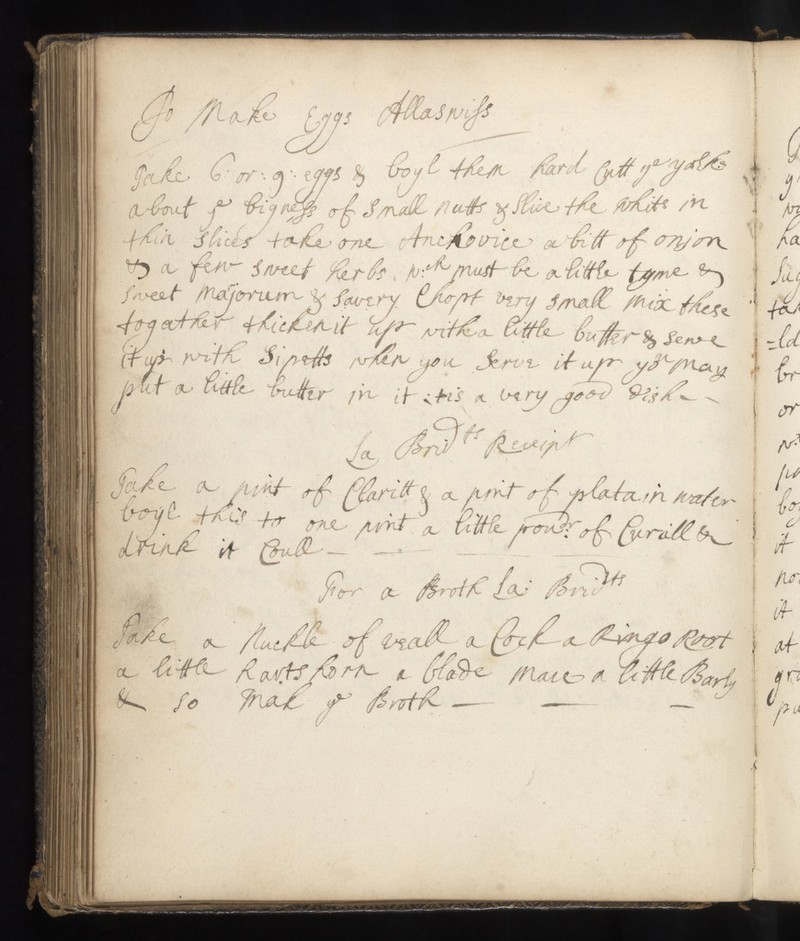 To Make Eggs Allaswiss
Take 6: or: 9: eggs & boyl them hard Cutt ye yolks
about ye bigness of small nutts & Slice the white in
thin slices take one Anchovice a bitt of onjon
& a few sweet herbs wch must be a little tyme &
sweet Majorum & Savery Chopt very small mix these
togather thicken it upr with a little butter & serve
it up with Sipetts when you Serve it upr you may
put a little butter in it : tis a very good dish - -
La Bridts Receipt
Take a pint of Claritt & a pint of platain water
boyl this to one pint a little poudr: of Curall &
drink it Coull - - - -
For a Broth La: Bridts
Take a Nuckle of veall a Cock a Ringo Root
a little hartshorn a blade Mace a little Barly
& so mak ye Broth - - -